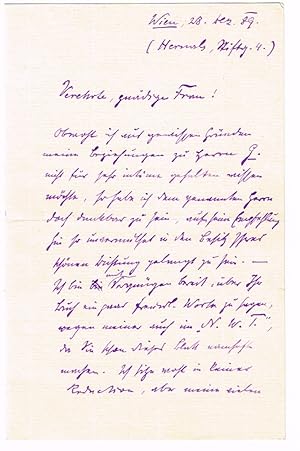 Wien, 28. Dez. 89.
(Hernals, Stiftg. 4.)
Verehrte, gnädige Frau!
Obwohl ich aus gewissen Gründen
meine Beziehungen zu Herrn
nicht für sehr intime gehalten wissen
möchte, so habe ich dem genannten Herrn
doch dankbar zu sein, auf seine Empfehlung
hin so unvermuthet in den Besitz Ihrer
schönen Dichtung gelangt zu sein. —
Ich bin mit Vergnügen bereit, über Ihr
Buch ein paar freundl. Worte zu sagen,
wegen meiner auch im „N. W. T.",
da Sie schon dieses Blatt namhaft
machen. Ich sitze wohl in keiner
Redaction, aber meine vielen